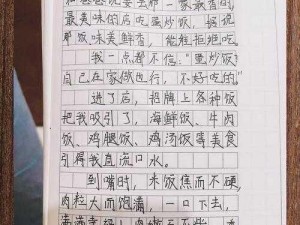 最美味的店吃蛋炒饭,据说
那饭味美鲜香,能推拒绝吃。
我一点都不信。“蛋炒饭
自己在家做也行,不好吃的”
进了店,招牌上各种饭
把我吸引了,海鲜饭、牛肉
饭、鸡腿饭、鸡汤饭等美食
引得我直流口水。
到嘴时,米饭焦而不硬,
肉粒大而饱满,一口下去,